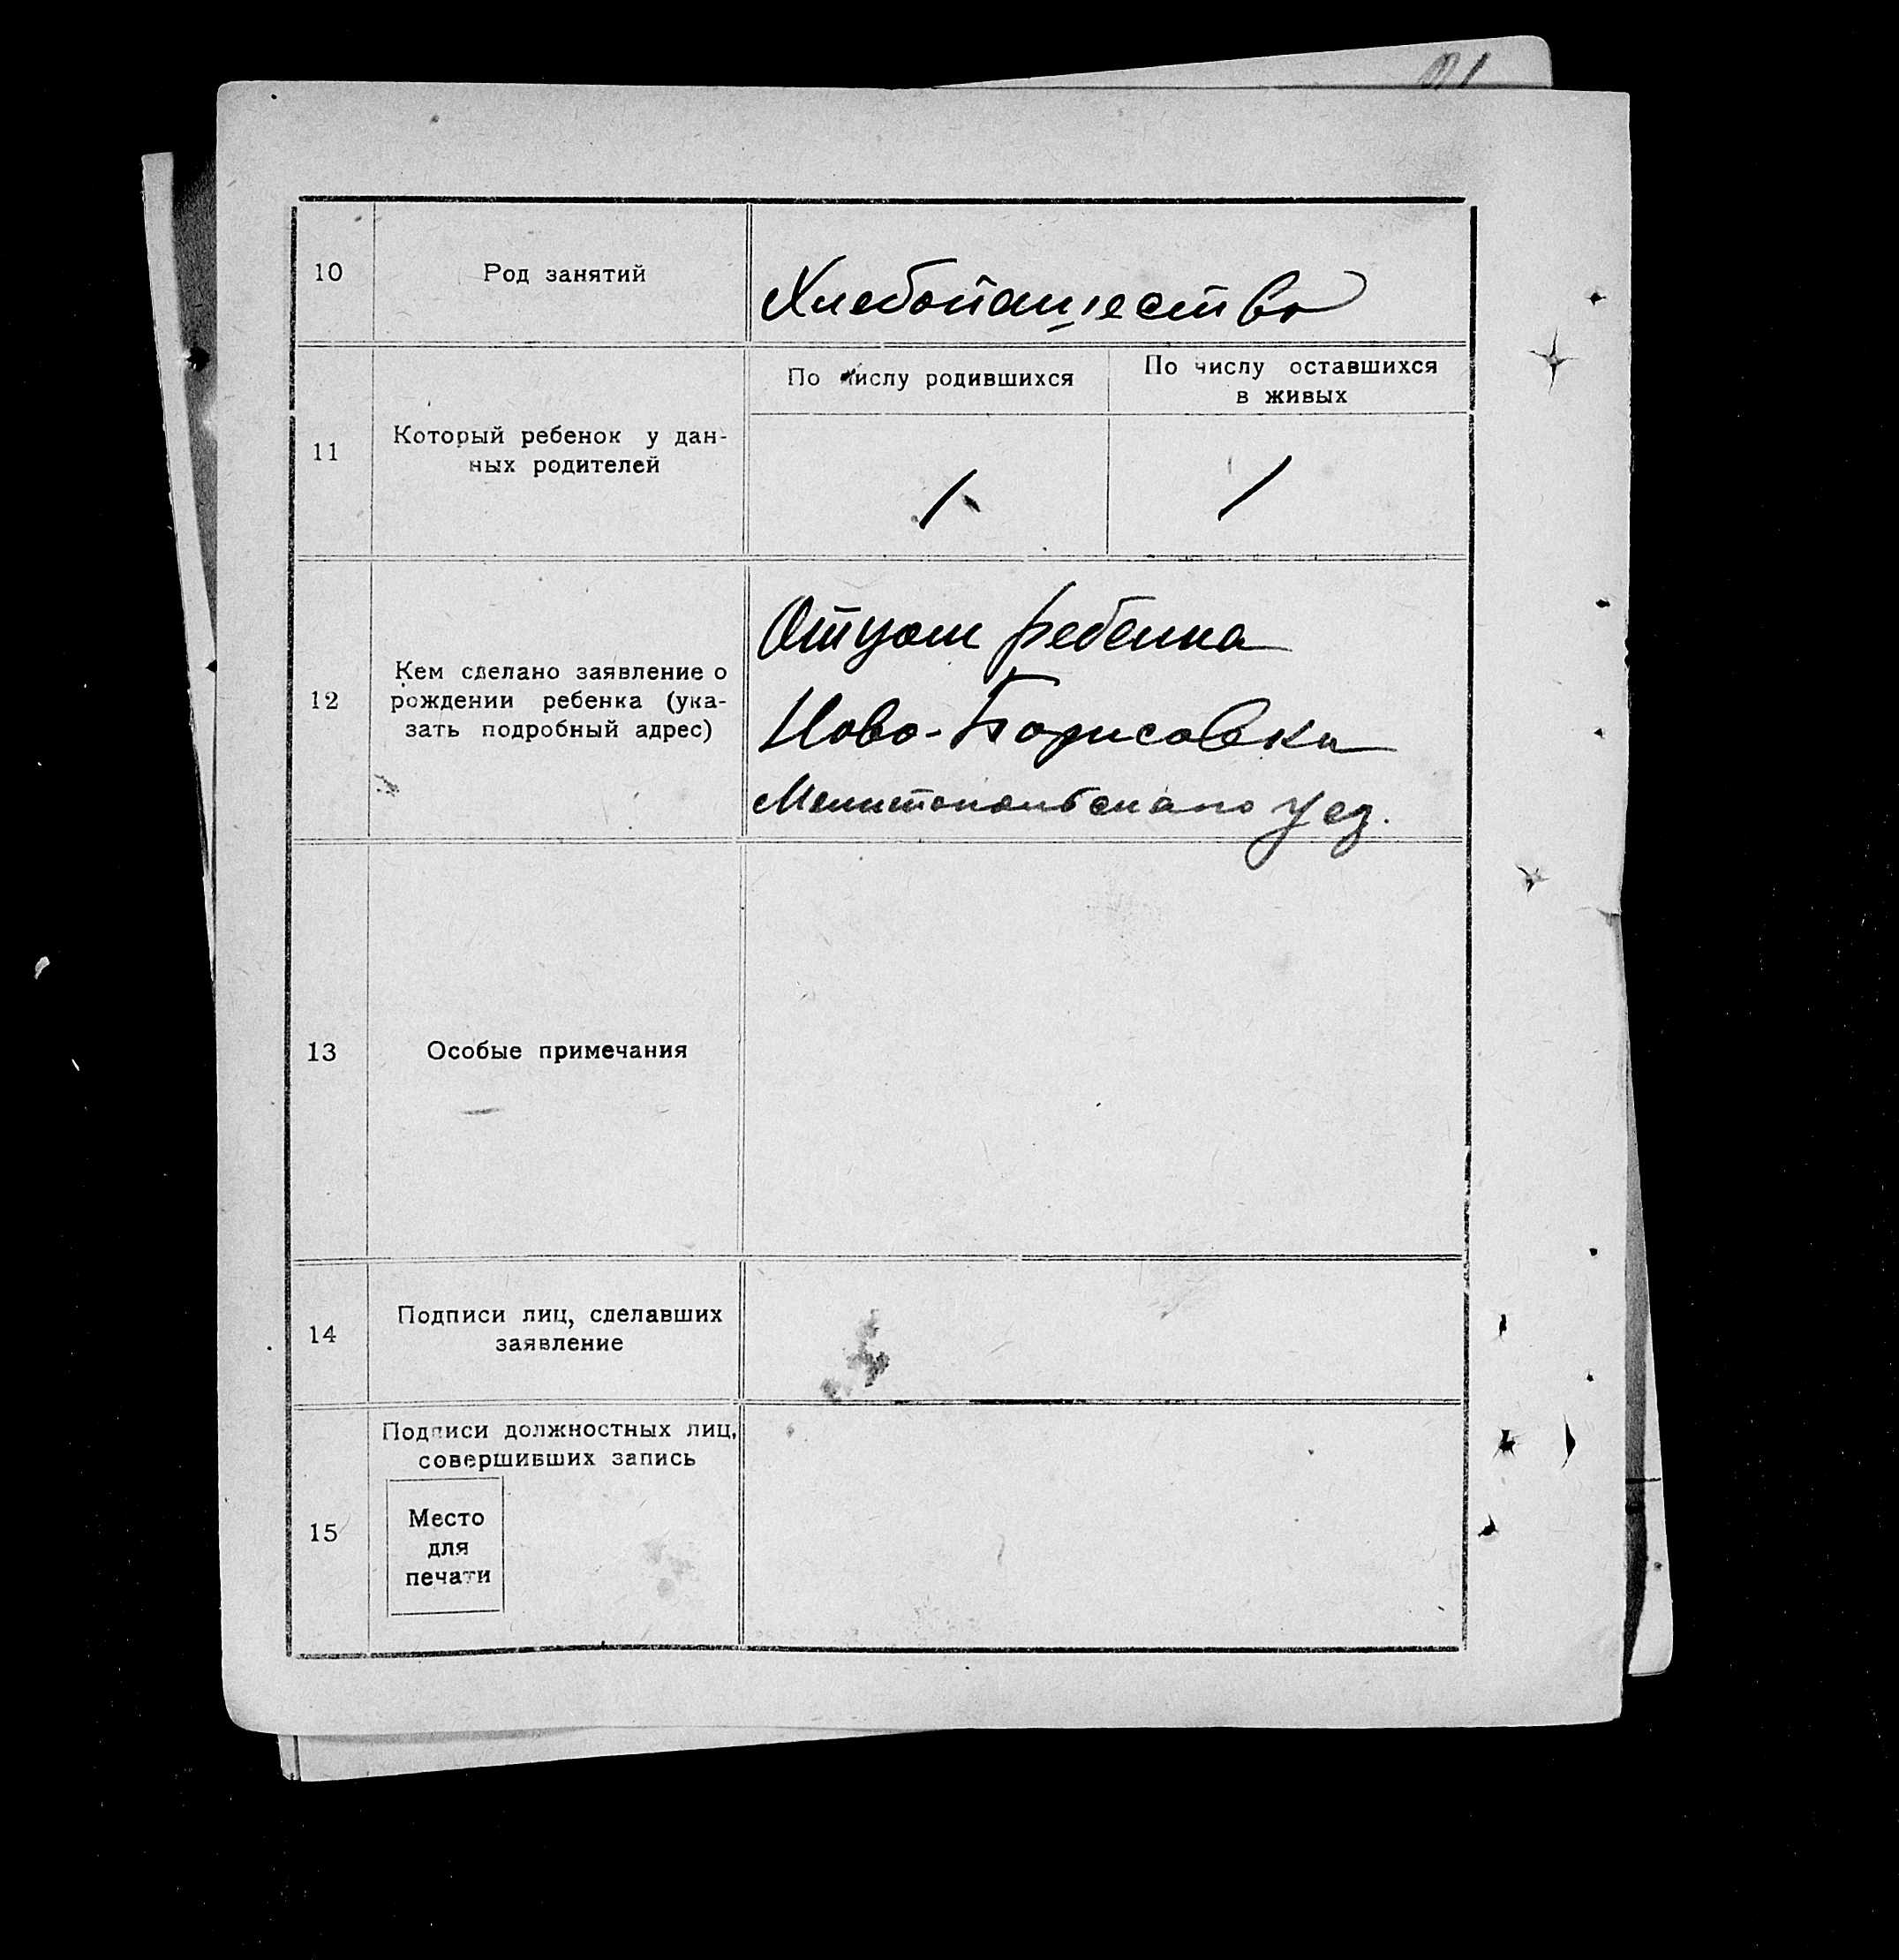 10
Род занятий
Хлебопашество
11
Который ребенок у дан-
ных родителей
По числу родившихся
По числу оставшихся
в живых
1
1
12
Кем сделано заявление о
рождении ребенка (ука-
зать подробный адрес)
Отцом ребенка
Ново-Борисовки
Мелитопольского уез.
13
Особые примечания
14
Подписи лиц, сделавших
заявление
15
Подписи должностных лиц,
совершивших запись
Место
для
печати